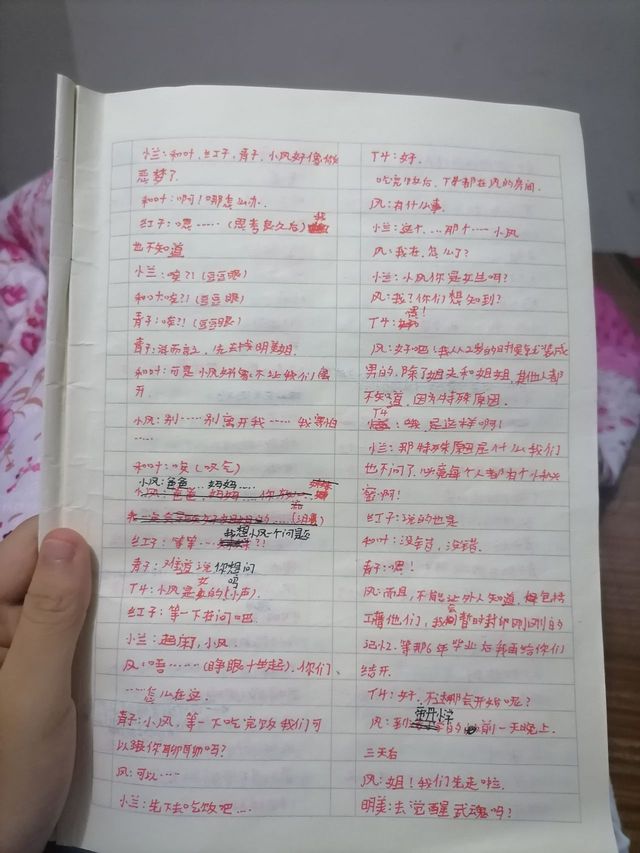 小兰:和叶,红子,青子,小风好像做
恶梦了.
和叶:啊!那怎么办.
红子:嗯……(思考良久后)我
也不知道
小兰:唉?!(豆豆眼)
和叶:唉?!(豆豆眼)
青子:唉?!(豆豆眼)
青子:总而言之,先去找明美姐.
和叶:可是小风好像不让我们离
开.
小风:别……别离开我……我害怕
……
和叶:唉(叹气)
小风:爸爸…妈妈….
小风:爸爸,妈妈…你放
红子:等等…我想小风一个问题?!
青子:难道说你想问
T4:小风是女的吗(小声).
红子:等一下在问吧.
小兰:起床了,小风.
风:唔……(睁眼+坐起).你们、
……怎么在这.
青子:小风,等一下吃完饭我们可
以跟你聊聊吗?
风:可以…
小兰:先下去吃饭吧….
T4:好.
吃完饭后,T4都在风的房间.
风:有什么事.
小兰:这个…,那个……小风
风:我在,怎么了?
小兰:小风你是女生吗?
风:我?你们想知道?
T4:嗯!
风:好吧(我从2岁的时候就装成
男的,除了姐夫和姐姐,其他人都
不知道,因为特殊原因.
T4:哦,是这样啊!
小兰:那特殊原因是什么我们
也不问了.毕竟每个人都有个小秘
密啊!
红子:说的也是
和叶:没错,没错.
青子:嗯!
风:而且,不能让外人知道,包括
工藤他们,我会暂时封印刚刚的
记忆.等那6年毕业后我再给你们
结开.
T4:好,不过那会开始呢?
风:到帝丹小学的前一天晚上.
三天后
风:姐!我们先走啦.
明美:去觉醒武魂吗?